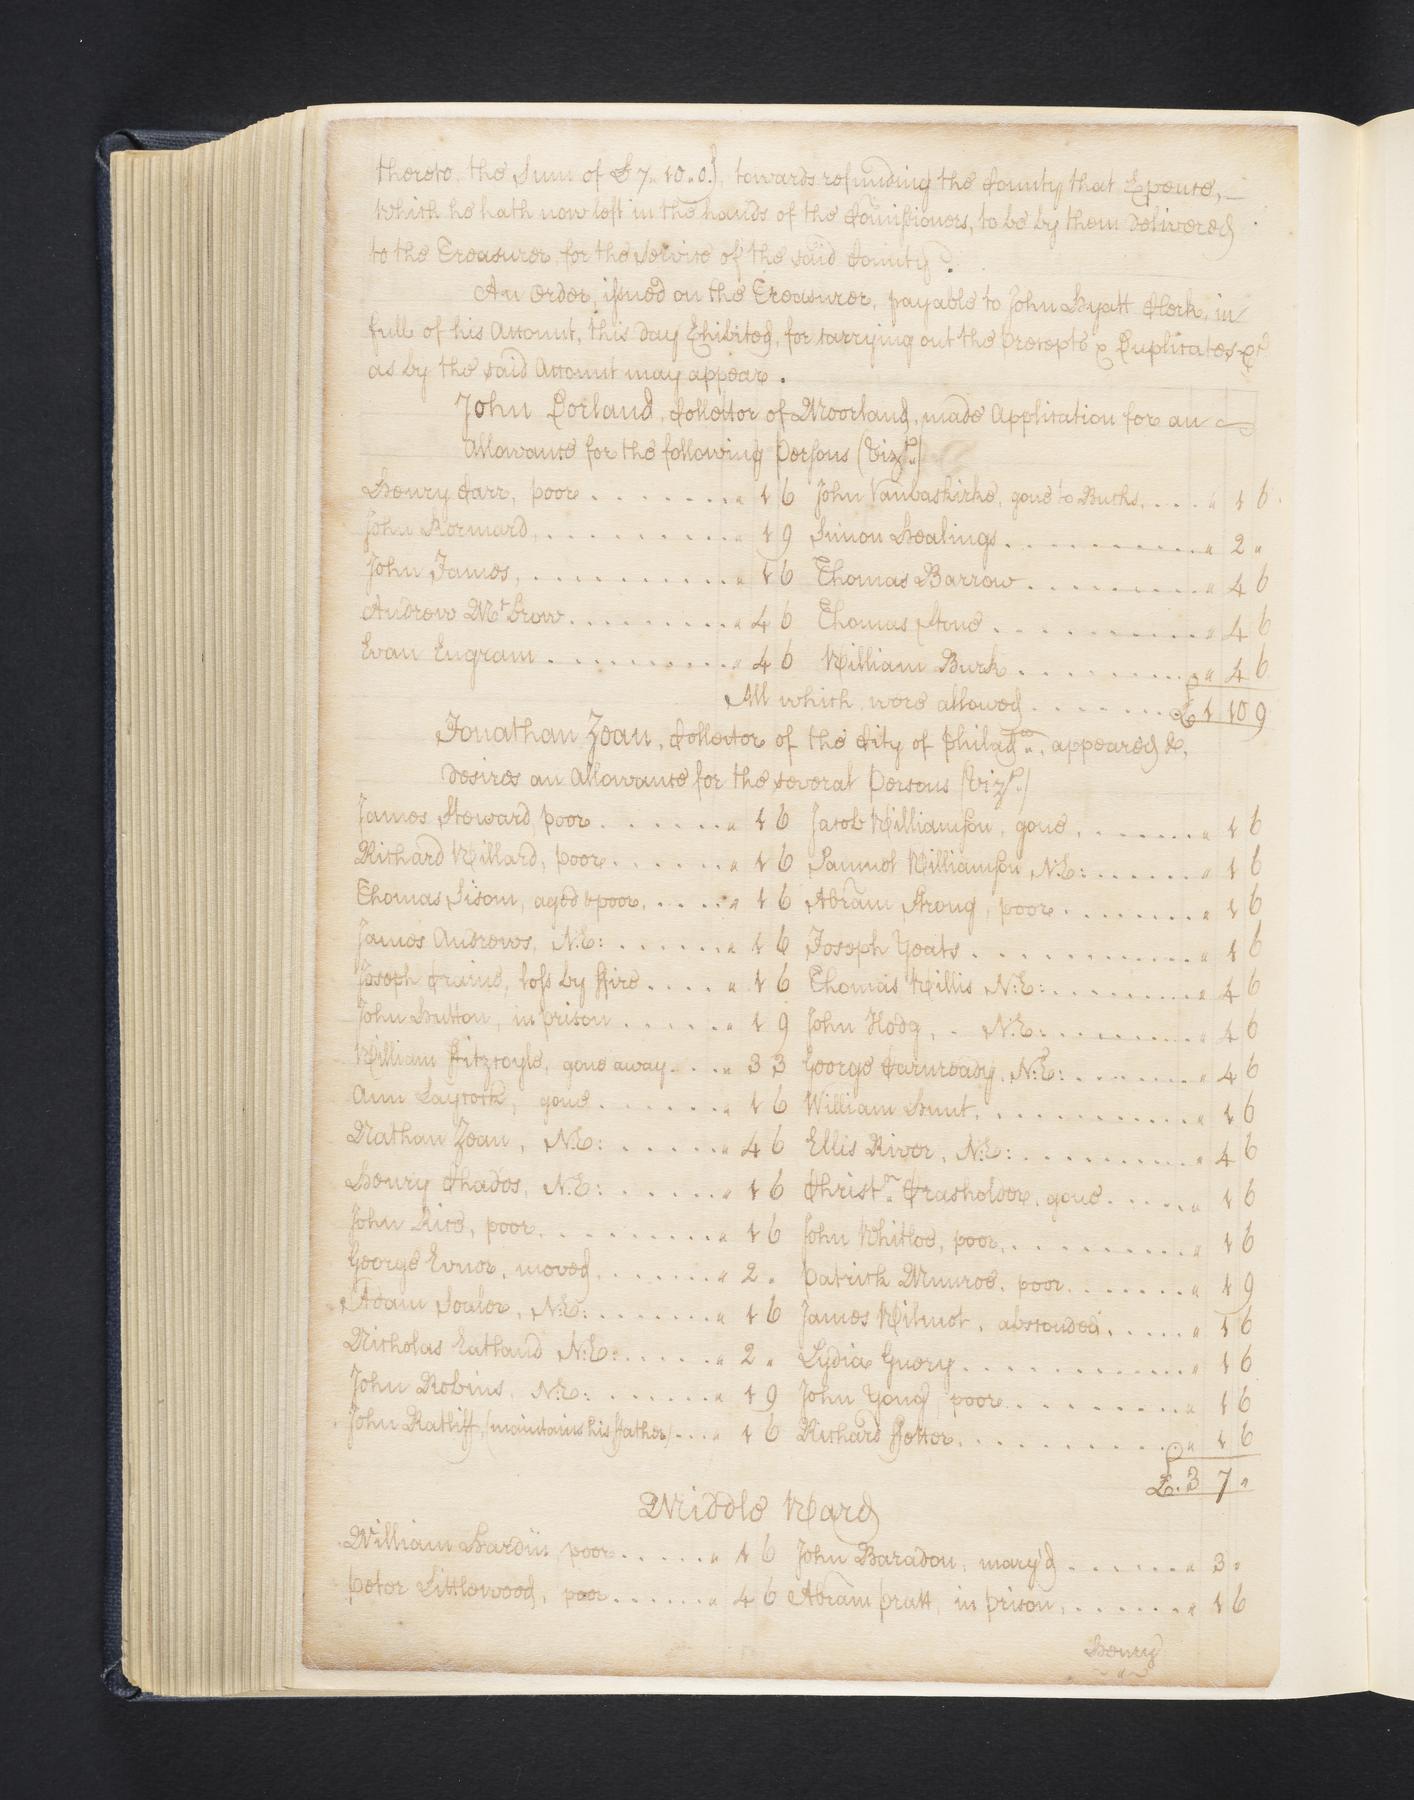 thereto, the Sum of £7,,10,,0.d, towards refunding the County that Expence,
Which he hath now left in the hands of the Comissioners, to be by them delivered
to the Treasurer, for the Service of the said County.
An order, issued on the Treasurer, payable to John Hyatt Clerk, in
full of his Account, this day Exhibited, for carrying out the Precepts & Duplicates &ca
as by the said Account may appear.
John Dorland, Collector of Moorland, made Application for an
Allowance for the following Persons (Vizt.)
Henry Carr, poor . . . . . . . . " 1 6 John Vanbaskirke, gone to Bucks, . . . . " 1 6
John . . . . . . . . . . " 1 9 Simon Healings . . . . . . . . . . " 2 "
John James, . . . . . . . . . . " 1 6 Thomas Barrow . . . . . . . . . " 4 6
Andrew . . . . . . . . . " 4 6 Thomas Stone . . . . . . . . . . " 4 6
Evan Engram . . . . . . . . . " 4 6 William Burk . . . . . . . . . " 4 6
All which were allowed . . . . . . . £ 1 10 9
Jonathan Zean, Collector of the City of Philada., appeared &,
desires an Allowance for the several Persons (Vizt.)
James Steward, poor . . . . . . . " 1 6 Jacob Williamson, gone, . . . . . . . " 1 6
Richard Willard, poor . . . . . . " 1 6 Samuel Williamson, N:E: . . . . . . " 1 6
Thomas Sisom, aged & poor, . . . . " 1 6 Abram Strong, poor . . . . . . . . " 1 6
James Andrews, N:E: . . . . . . " 1 6 Joseph Yeats . . . . . . . . . . . . " 1 6
Joseph Craine, loss by ffire . . . . " 1 6 Thomas Willis N:E: . . . . . . . . " 4 6
John Hutton, in prison . . . . . . " 1 9 John Hodg, . . N:E: . . . . . . . . " 4 6
William gone away . . . " 3 3 George N:E: . . . . . . . " 4 6
Ann Laycock, gone . . . . . . . " 1 6 William Hunt, . . . . . . . . . . . " 1 6
Nathan Zean, N:E: . . . . . . " 4 6 Ellis River, N:E: . . . . . . . . . . " 4 6
Henry Chades, N:E: . . . . . . " 1 6 Christ.n Crasholder, gone . . . . . " 1 6
John Rice, poor . . . . . . . . . " 1 6 John Whitloe, poor . . . . . . . . . " 1 6
George Evnor, moved . . . . . . . " 2 " Patrick Munroe, poor . . . . . . . " 1 9
Adam N:E: . . . . . . . " 1 6 James Wilmot, absconded . . . . . " 1 6
Nicholas Eatland N:E: . . . . . . " 2 " Lydia Guery . . . . . . . . . . . . " 1 6
John Robins, N:E: . . . . . . . " 1 9 John Yong, poor . . . . . . . . . " 1 6
John Ratliff, (maintains his ffather) . . . . " 1 6 Richard . . . . . . . . . . " 1 6
£. 3 7 "
Middle Ward
William poor . . . . . . " 1 6 John Baradon, mary'd . . . . . . . " 3 "
Peter Littlewood, poor . . . . . . " 4 6 Abram pratt, in prison, . . . . . . . " 1 6
Henry